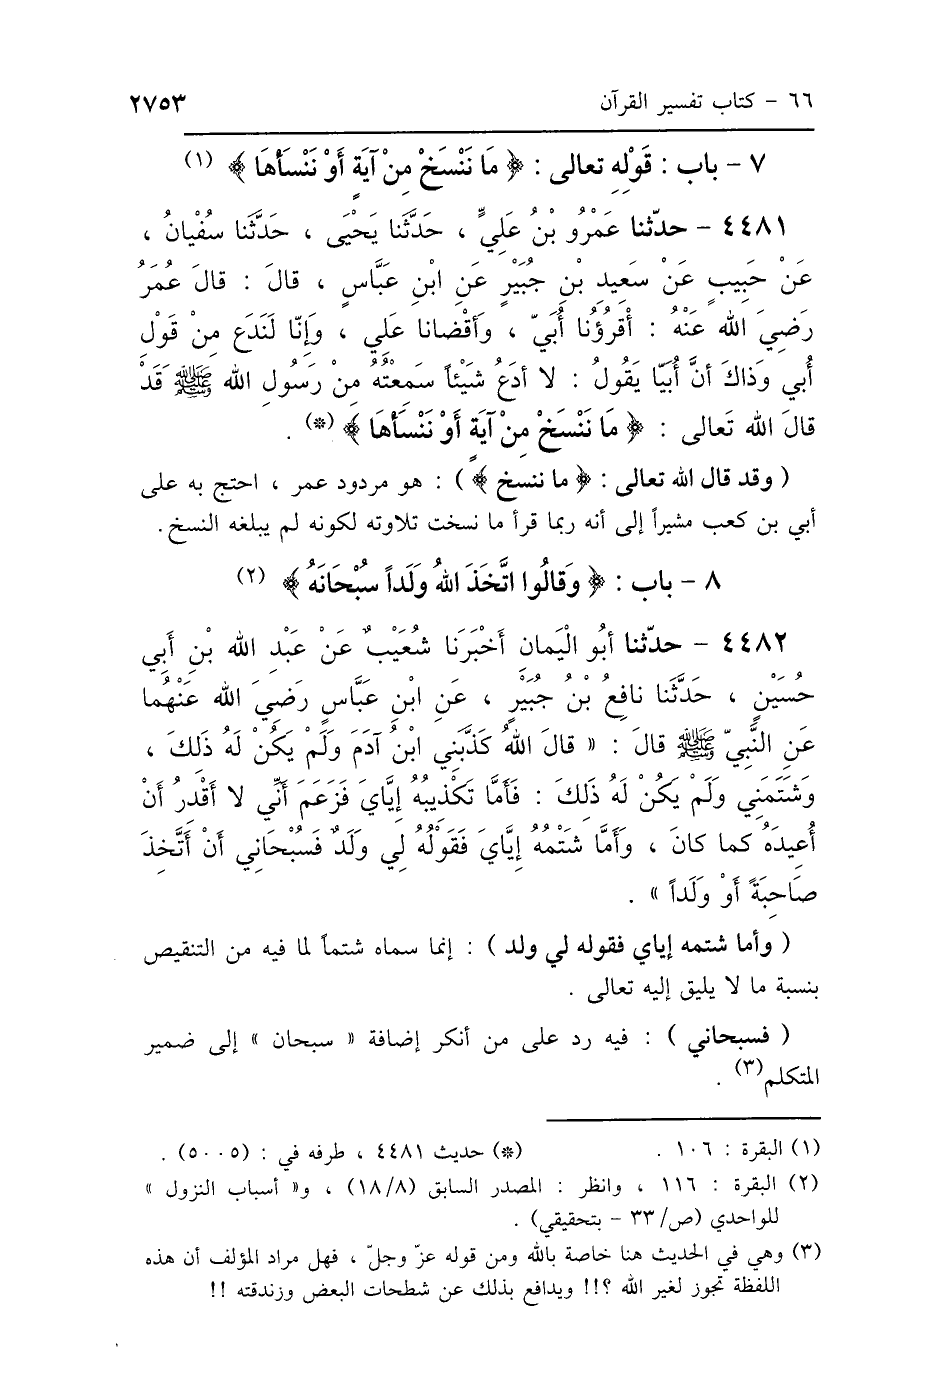 ٦٦ - كتاب تفسير القرآن ٢٧٥٣
٧ - باب : قَوْلِهِ تعالى : ﴿ مَا نَنْسَخْ مِنْ آيَةٍ أَوْ نَنْسَأْهَا ﴾ (١)
٤٤٨١ - حدّثنا عَمْرُو بْنُ عَلِيٍّ ، حَدَّثَنا يَحْيَى ، حَدَّثَنا سُفْيانُ ،
عَنْ حَبِيبٍ عَنْ سَعِيدِ بْنِ جُبَيْرٍ عَنِ ابْنِ عَبَّاسٍ ، قالَ : قالَ عُمَرُ
رَضِيَ الله عَنْهُ : أَقْرَؤُنا أُبَيّ ، وأَقْضانا عَلِي ، وَإِنّا لَنَدَع مِنْ قَوْلِ
أُبي وَذاكَ أنَّ أُبَيّا يَقُولُ : لا أدَعُ شَيْئاً سَمِعْتُهُ مِنْ رَسُولِ الله ﷺ وَقَدْ
قالَ الله تَعالى : ﴿ مَا نَنْسَخْ مِنْ آيَةٍ أَوْ نَنْسَأْهَا ﴾ (*) .
( وقد قال الله تعالى : ﴿ ما ننسخ ﴾ ) : هو مردود عمر ، احتج به على
أبي بن كعب مشيراً إلى أنه ربما قرأ ما نسخت تلاوته لكونه لم يبلغه النسخ.
٨ - باب : ﴿ وَقَالُوا اتَّخَذَ اللهُ وَلَداً سُبْحَانَهُ ﴾ (٢)
٤٤٨٢ - حدّثنا أبُو الْيَمانِ أَخْبَرَنا شُعَيْبٌ عَنْ عَبْدِ الله بْنِ أَبي
حُسَيْنٍ ، حَدَّثَنا نافِعُ بْنُ جُبَيْرٍ ، عَنِ ابْنِ عَبَّاسٍ رَضِيَ الله عَنْهُما
عَنِ النَّبِيّ ﷺ قالَ : « قالَ اللهُ كَذَّبَنِي ابْنُ آدَمَ وَلَمْ يَكُنْ لَهُ ذَلِكَ ،
وَشَتَمَنِي وَلَمْ يَكُنْ لَهُ ذَلِكَ : فَأَمَّا تَكْذِيبُهُ إِيَّايَ فَزَعَمَ أَنِّي لا أَقْدِرُ أَنْ
أُعِيدَهُ كما كانَ ، وَأَمَّا شَتْمُهُ إِيَّايَ فَقَوْلُهُ لِي وَلَدٌ فَسُبْحَانِي أَنْ أَتَّخِذَ
صَاحِبَةً أَوْ وَلَداً » .
( وأما شتمه إياي فقوله لي ولد ) : إنما سماه شتماً لما فيه من التنقيص
بنسبة ما لا يليق إليه تعالى .
( فسبحاني ) : فيه رد على من أنكر إضافة « سبحان » إلى ضمير
المتكلم(٣) .
(١) البقرة : ١٠٦ . (*) حديث ٤٤٨١ ، طرفه في : (٥٠٠٥) .
(٢) البقرة : ١١٦ ، وانظر : المصدر السابق (١٨/٨) ، و« أسباب النزول »
للواحدي (ص/ ٣٣ - بتحقيقي) .
(٣) وهي في الحديث هنا خاصة بالله ومن قوله عزّ وجلّ ، فهل مراد المؤلف أن هذه
اللفظة تجوز لغير الله ؟!! ويدافع بذلك عن شطحات البعض وزندقته !!